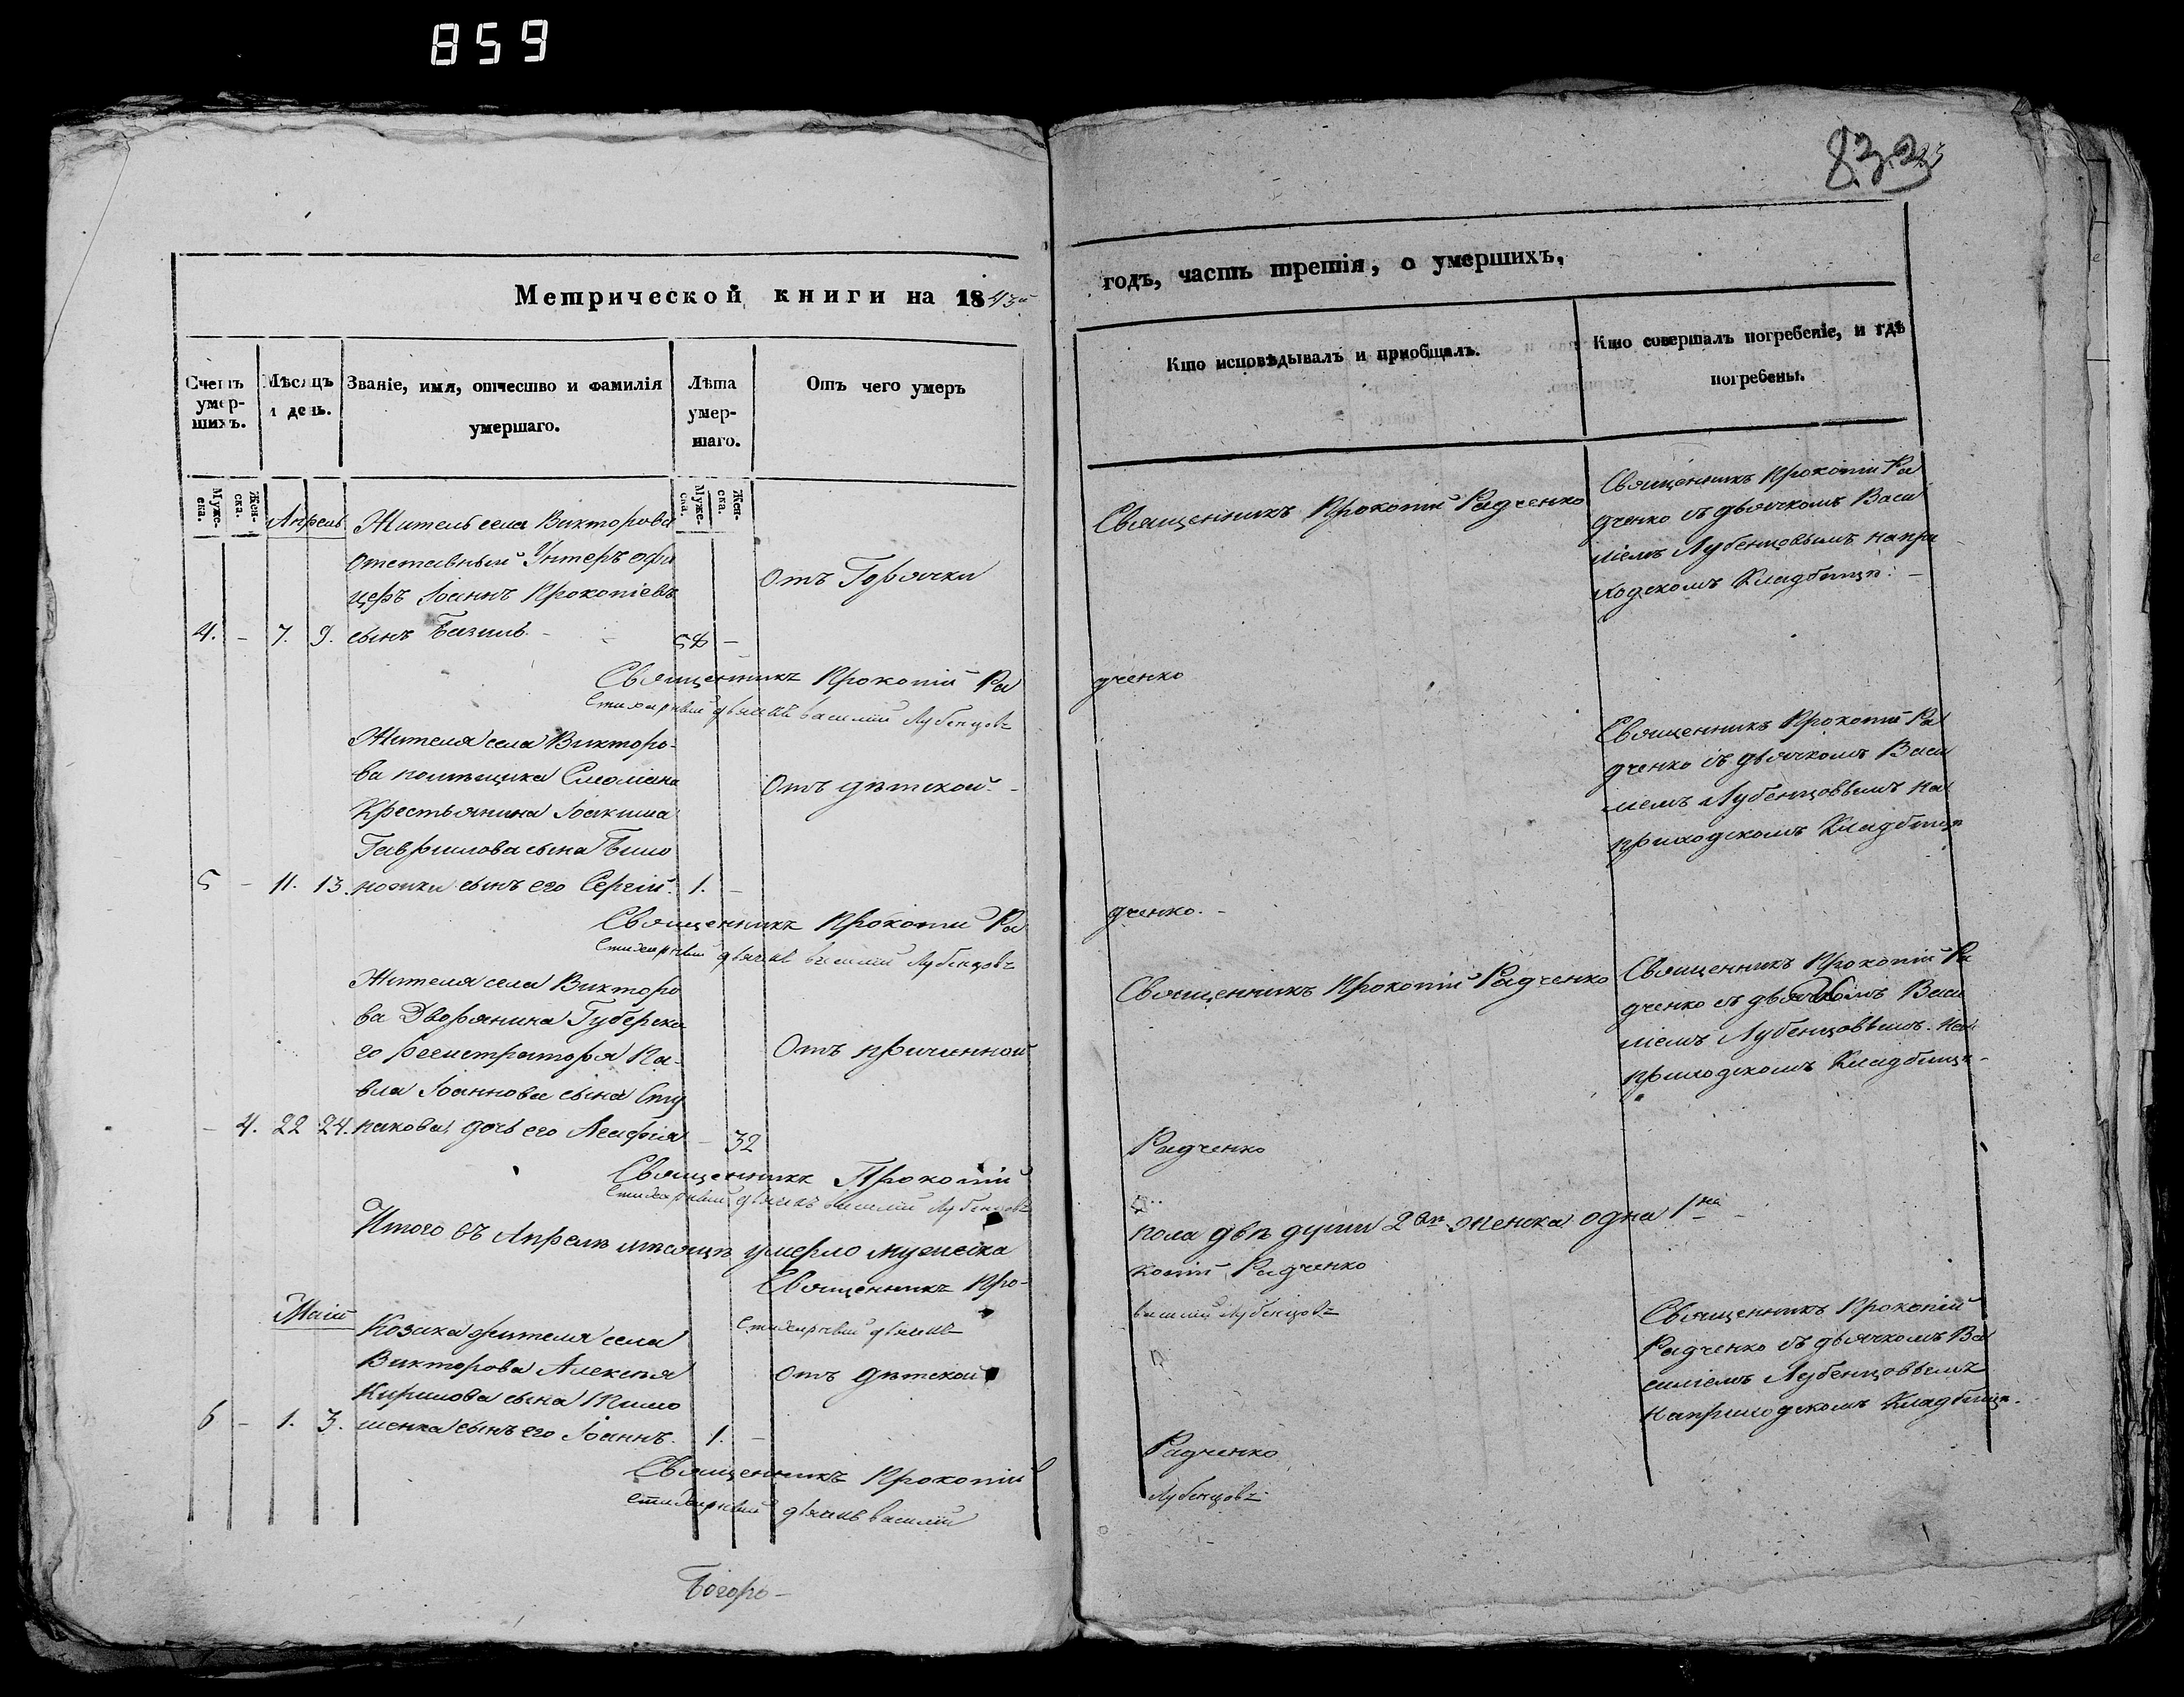 859
832
23
Метрической книги на 1843й
годъ, часть третія, о умершихъ.
Счетъ умер-шихъ.
Мѣсяцъ и день.
Званіе, имя, отчество и фамилія умершаго.
Лѣта умер-шаго.
Отъ чего умеръ
Кто исповѣдывалъ и пріобщалъ.
Кто совершалъ погребеніе, и гдѣ погребены.
Муже-ска.
Жен-ска.
Муже-ска.
Жен-ска.
Апрель
Житель села Викторова
отставный Унтеръ офи
церъ Іоаннъ Прокопіевъ
4. – 7. 9. сынъ Базиль – 58 –
Отъ Горячки
Священникъ Прокопій Радченко
Священникъ Прокопій Ра
дченко съ дьячкомъ Васи
ліемъ Лубенцовымъ на при
ходскомъ Кладбищѣ. –
Священникъ Прокопій Ра
дченко
Стихарный дьячокъ Василий Лубенцовъ
Жителя села Викторо-
ва помѣщика
Крестьянина Іоакима
Гаврилова сына Било
5 – 11. 13. ножки сынъ его Сергій. 1. –
Отъ дѣтской –
Священникъ Прокопій Ра
дченко съ дьячкомъ Васи
лиемъ Лубенцовымъ на
приходскомъ Кладбищѣ
Священникъ Прокопий Ра
дченко. –
Стихарный дьячокъ василий Лубенцовъ
Жителя села Викторо
ва Дворянина Губернска
го регистратора Па-
вла Іоаннова сына Сту
– 4. 22 24. пакова дочь его Агафія – 32
Отъ причинной
Священникъ Прокопій Радченко
Священникъ Прокопій Ра
дченко съ дьячкомъ Васи
ліемъ Лубенцовымъ на
приходскомъ Кладбищѣ –
Священникъ Прокопий
Радченко
Стихарный дьячокъ василий Лубенцовъ
Итого въ Апрелѣ мѣсяцѣ умерло мужеска
пола двѣ души 2ѣ женска одна 1на
Священникъ Про-
копий Радченко
Стихарный дьячокъ
василий Лубенцовъ
Маій
Козака жителя села
Викторова Алексѣя
Кирилова сына Кли
6 – 1. 3. менка сынъ его Іоаннъ. 1. –
Отъ дѣтской
Священникъ Прокопій
Радченко съ дьячкомъ Ва
силіемъ Лубенцовымъ
на приходскомъ Кладбищѣ.
Священникъ Прокопий
Радченко
Стихарный дьячокъ василий
Лубенцовъ
Богоро-